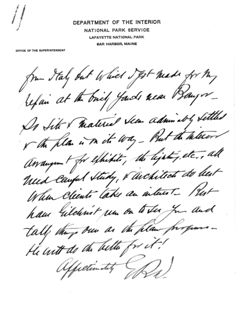 11
DEPARTMENT OF THE INTERIOR
NATIONAL PARK SERVICE
LAFAYETTE NATIONAL PARK
BAR HARBOR, MAINE
OFFICE OF THE SUPERINTENDENT
from Italy but which I got made for my
repair at the brick yards near Bangor.
So site & material seem admirably settled
& the plan is on its way. But the interior
arrangement for exhibits, the lighting, etc., all
need careful study, & architects do best
when clients take an interest. But
have Gilchrist run on to see you and
talk things over as the plan progresses.
He will do the better for it!
Affectionately